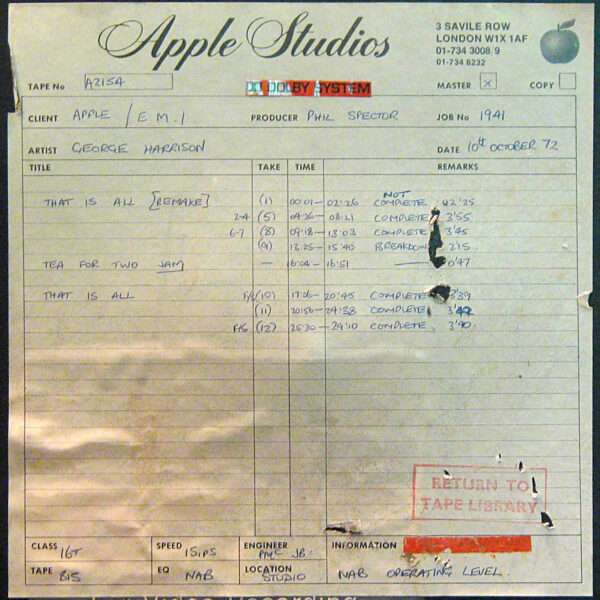 Apple Studios
3 SAVILE ROW
LONDON W1X 1AF
01-734 3008/9
01-734 6232
TAPE No A2154 DOLBY SYSTEM MASTER X COPY
CLIENT APPLE / E M I PRODUCER PHIL SPECTOR JOB No 1941
ARTIST GEORGE HARRISON DATE 10th OCTOBER 72
TITLE TAKE TIME REMARKS
NOT
THAT IS ALL [REMAKE] (1) 00:01 - 02:26 COMPLETE 02'25
2-4 (5) 04:26 - 08:21 COMPLETE 3'55
6-7 (8) 09:18 - 13:03 COMPLETE 3'45
(9) 13:25 - 15:40 BREAKDOWN 2'15
TEA FOR TWO JAM — 16:04 - 16:51 — 0'47
THAT IS ALL F/S (10) 17:06 - 20:45 COMPLETE 3'39
(11) 20:56 - 24:38 COMPLETE 3'42
F/S (12) 25:30 - 29:10 COMPLETE 3'40
RETURN TO
TAPE LIBRARY
CLASS 16T SPEED 15 IPS ENGINEER JB INFORMATION
TAPE 815 EQ NAB LOCATION STUDIO NAB OPERATING LEVEL